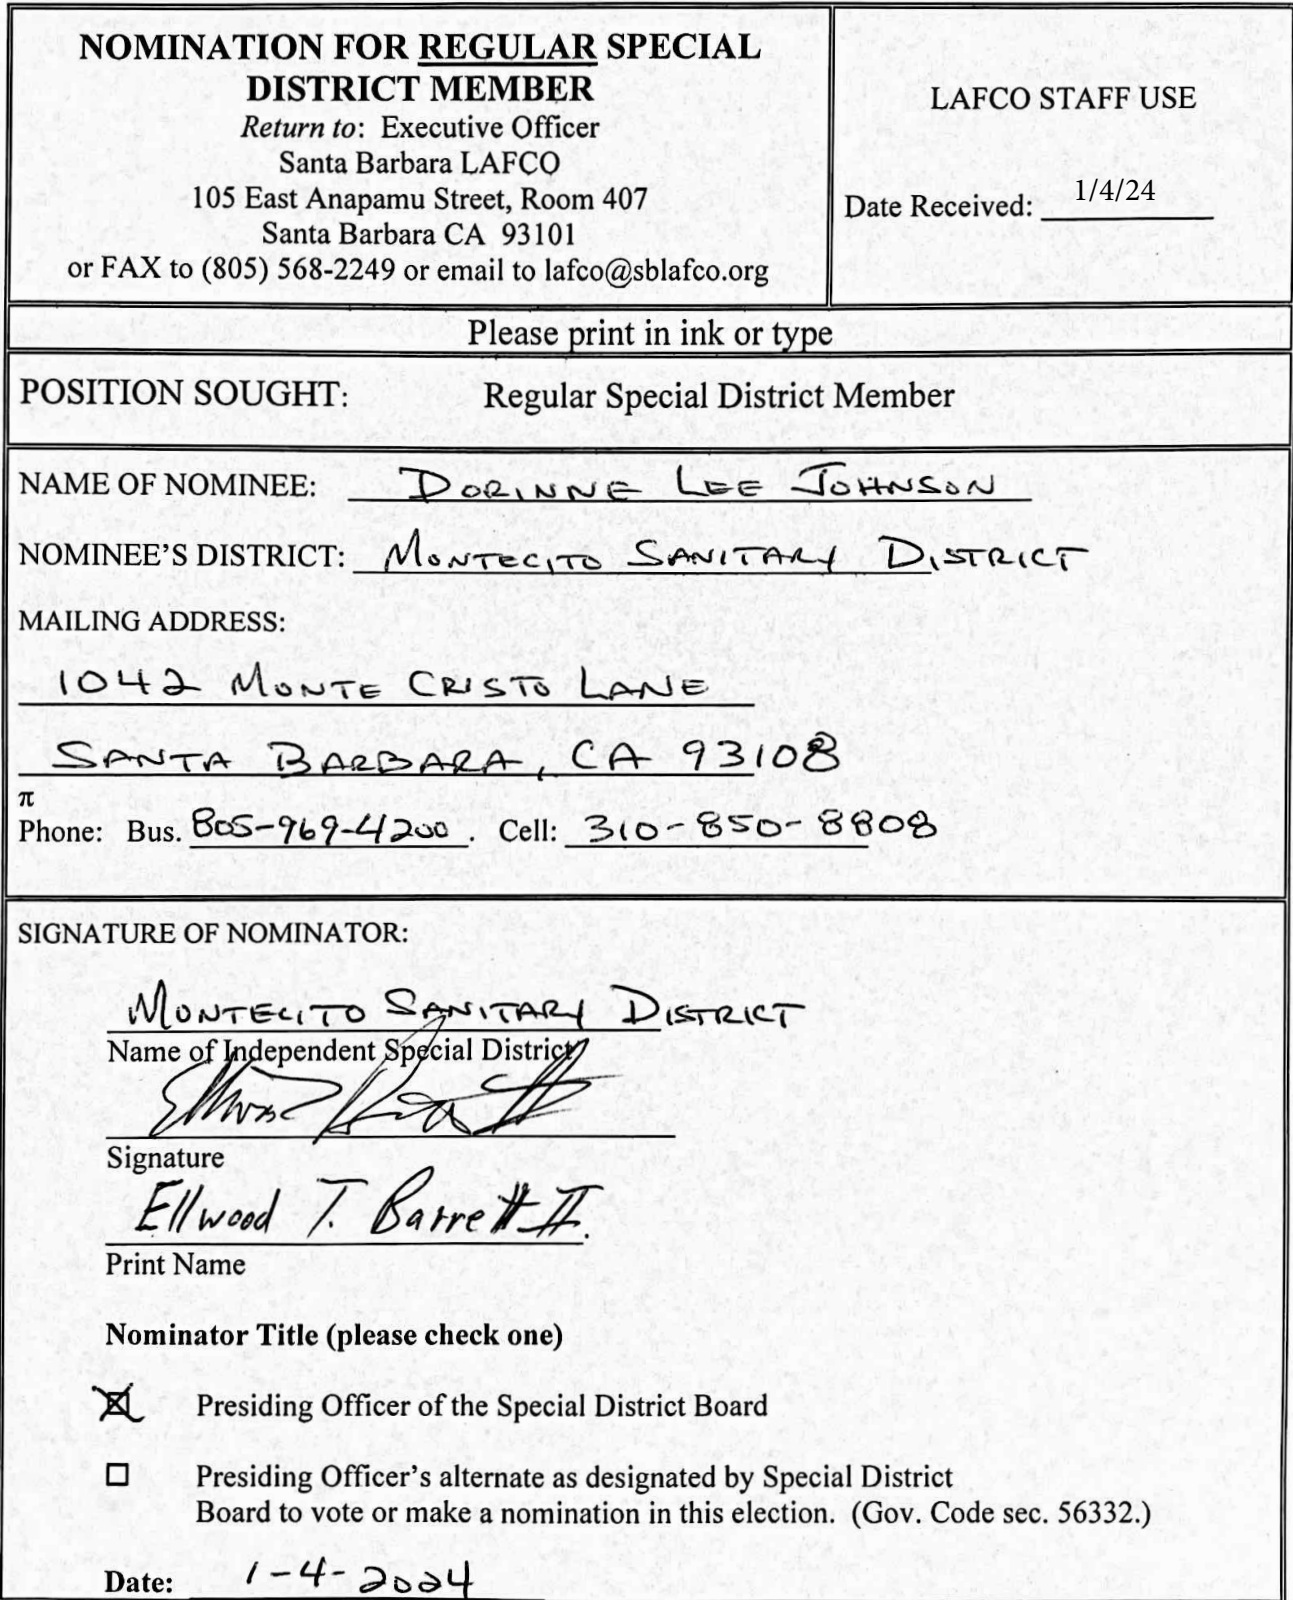 NOMINATION FOR REGULAR SPECIAL
DISTRICT MEMBER
Return to: Executive Officer
Santa Barbara LAFCO
105 East Anapamu Street, Room 407
Santa Barbara CA 93101
or FAX to (805) 568-2249 or email to lafco@sblafco.org
LAFCO STAFF USE
Date Received: 1/4/24
Please print in ink or type
POSITION SOUGHT: Regular Special District Member
NAME OF NOMINEE: DORINNE LEE JOHNSON
NOMINEE'S DISTRICT: MONTECITO SANITARY DISTRICT
MAILING ADDRESS:
1042 MONTE CRISTO LANE
SANTA BARBARA, CA 93108
π
Phone: Bus. 805-969-4200. Cell: 310-850-8808
SIGNATURE OF NOMINATOR:
MONTECITO SANITARY DISTRICT
Name of Independent Special District
Signature
Ellwood T. Barrett II.
Print Name
Nominator Title (please check one)
Presiding Officer of the Special District Board
Presiding Officer's alternate as designated by Special District
Board to vote or make a nomination in this election. (Gov. Code sec. 56332.)
Date: 1-4-2024